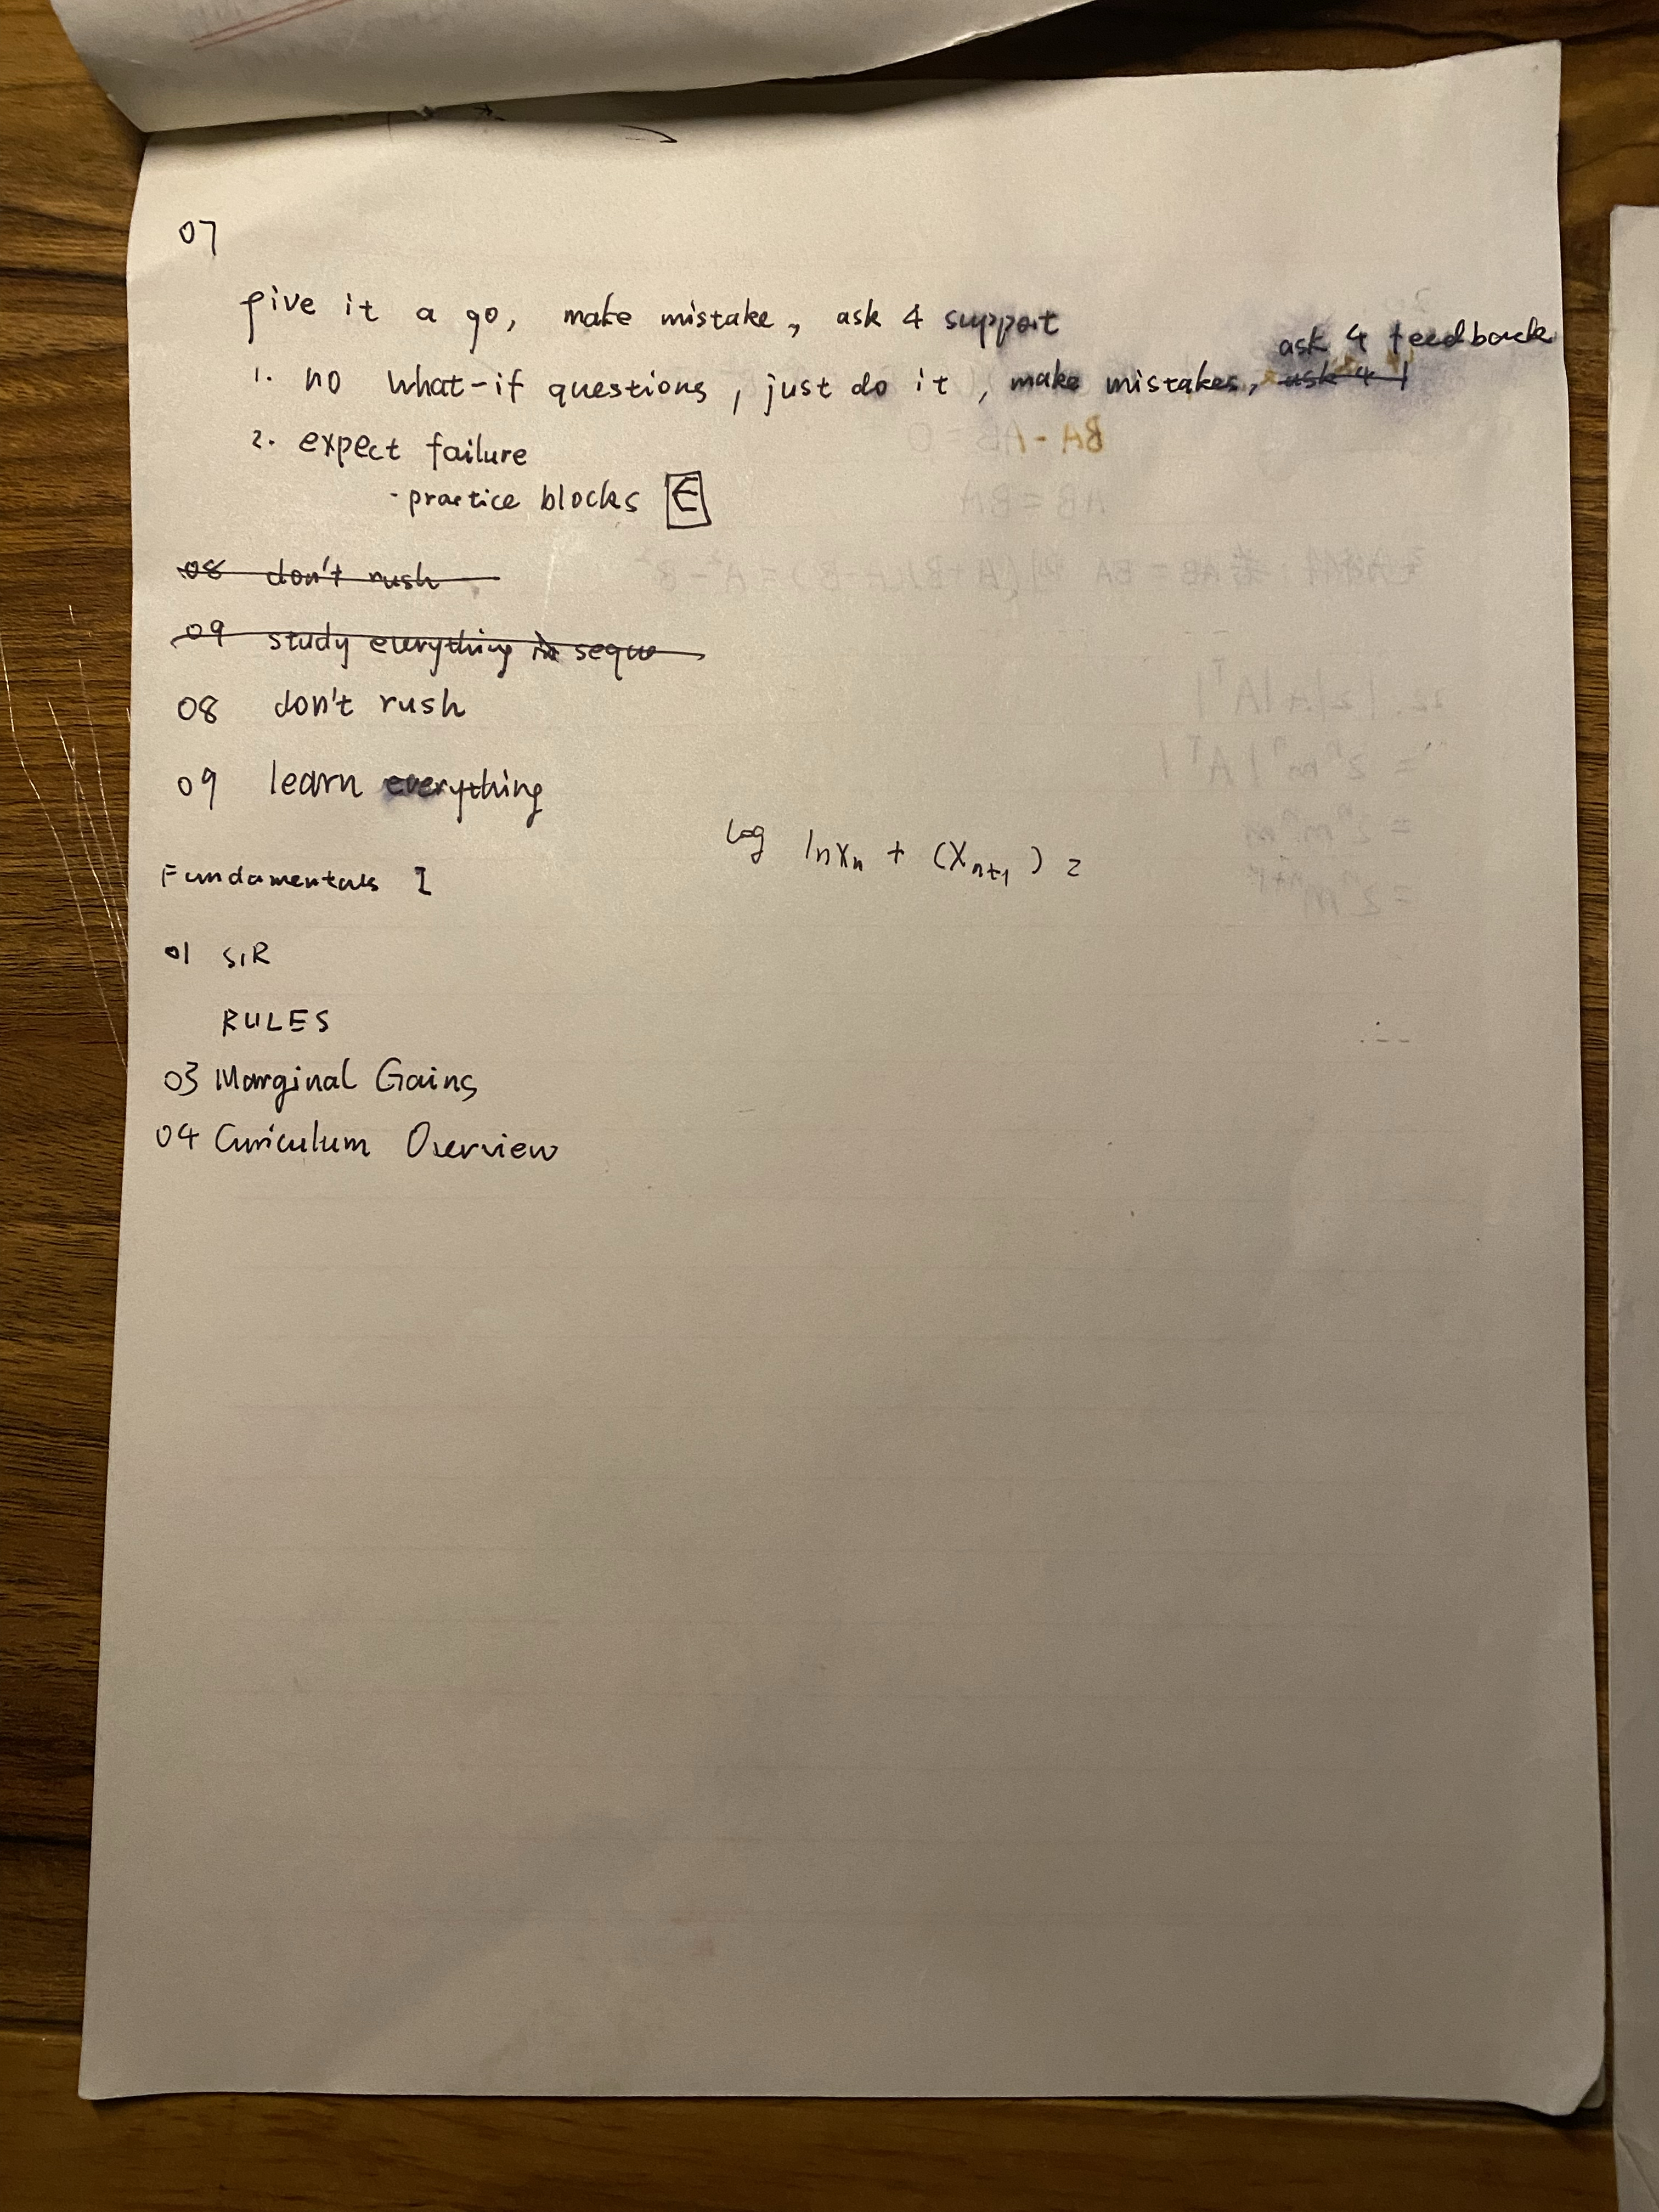 07
give it a go, make mistake, ask 4 support
ask 4 feedback
1. no what-if questions, just do it, make mistakes, ask 4 f
2. expect failure
- practice blocks E
08 don't rush
09 study everything in seque
08 don't rush
09 learn everything
log lnxₙ + (Xₙ₊₁) 2
Fundamentals I
01 SIR
RULES
03 Marginal Gains
04 Curiculum Overview
BA - AB = 0
AB = BA